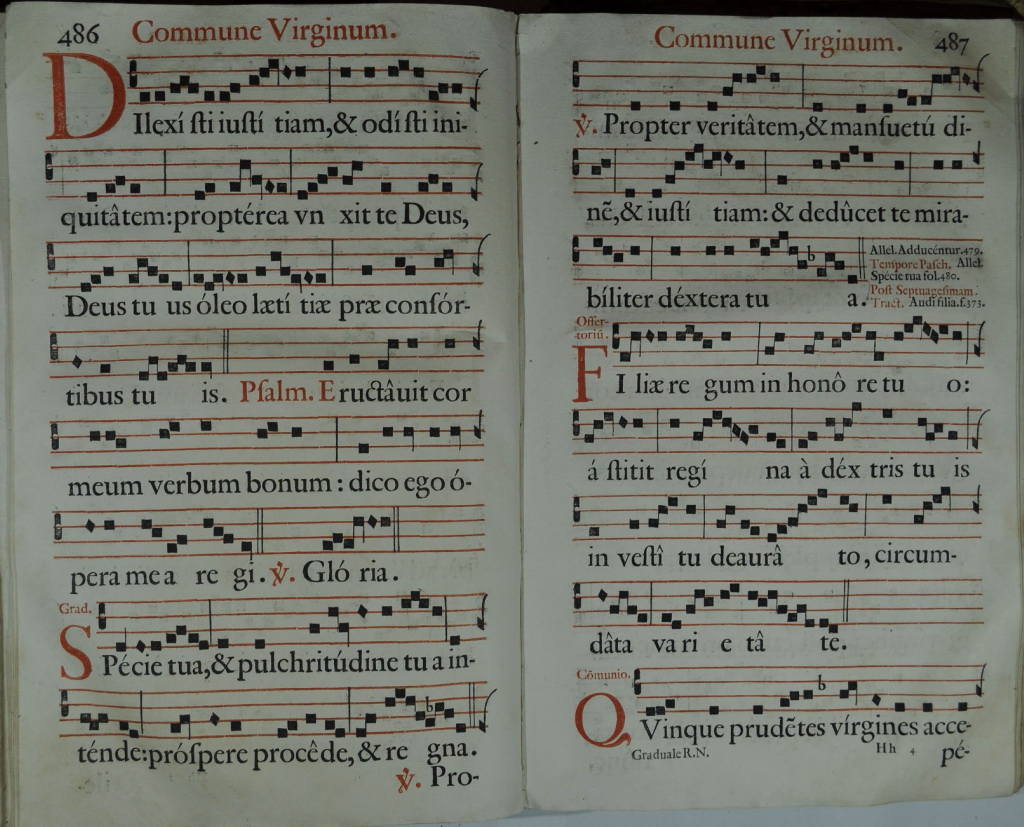 486 Commune Virginum.
DIlexí ſti iuſtí tiam,& odí ſti ini-
quitâtem:proptérea vn xit te Deus,
Deus tu us óleo lætí tiæ præ conſór-
tibus tu is. Pſalm. Eructâuit cor
meum verbum bonum : dico ego ó-
pera mea re gi. ℣. Gló ria.
Grad.
SPécie tua,& pulchritúdine tu a in-
ténde:próſpere procêde, & re gna.
℣. Pro-
Commune Virginum. 487
℣. Propter veritâtem,& manſuetú di-
nẽ,& iuſtí tiam: & dedûcet te mira-
bíliter déxtera tu a.
Allel. Adducéntur.479.
Tempore Paſch. Allel.
Spécie tua fol.480.
Poſt Septuageſimam.
Tract. Audi filia.f.373.
Offer-
toriũ.
FI liæ re gum in honô re tu o:
á ſtitit regí na à déx tris tu is
in veſtî tu deaurâ to, circum-
dâta va ri e tâ te.
Cõmunio.
QVinque prudẽtes vírgines acce-
Graduale R.N. Hh 4 pé-